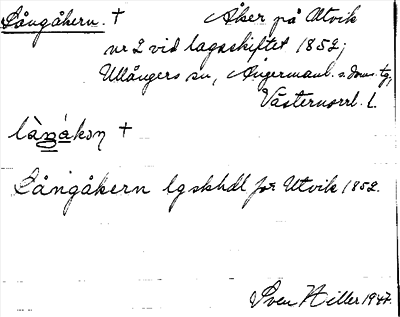 Långåkern. †
Åker på Utvik
nr 2 vid lagaskiftet 1852;
Ullångers sn, Ångermanl. s. doms. tg,
Västernorrl. l.
làŋákɔɳ †
Långåkern lgskhdl för Utvik 1852.
Sven Hiller 1947.